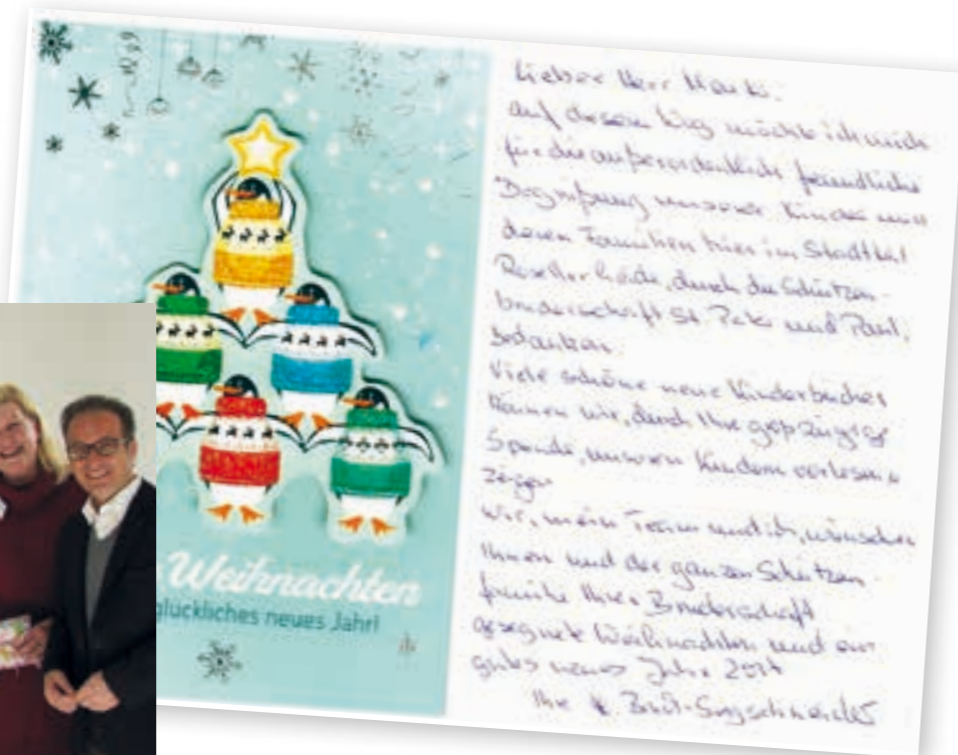 Weihnachten
glückliches neues Jahr!
Lieber Herr
auf diesem Weg möchte ich mich
für die außerordentlich freundliche
Begrüßung unserer Kinder und
deren Familien hier im Stadtteil
Rosellerheide, durch die Schützen-
bruderschaft St. Peter und Paul,
bedanken.
Viele schöne neue Kinderbücher
können wir, durch Ihre großzügige
Spende, unseren Kindern vorlesen u
zeigen
Wir, mein Team und ich, wünschen
Ihnen und der ganzen Schützen-
familie Ihrer Bruderschaft
gesegnete Weihnachten und ein
gutes neues Jahr
Ihre